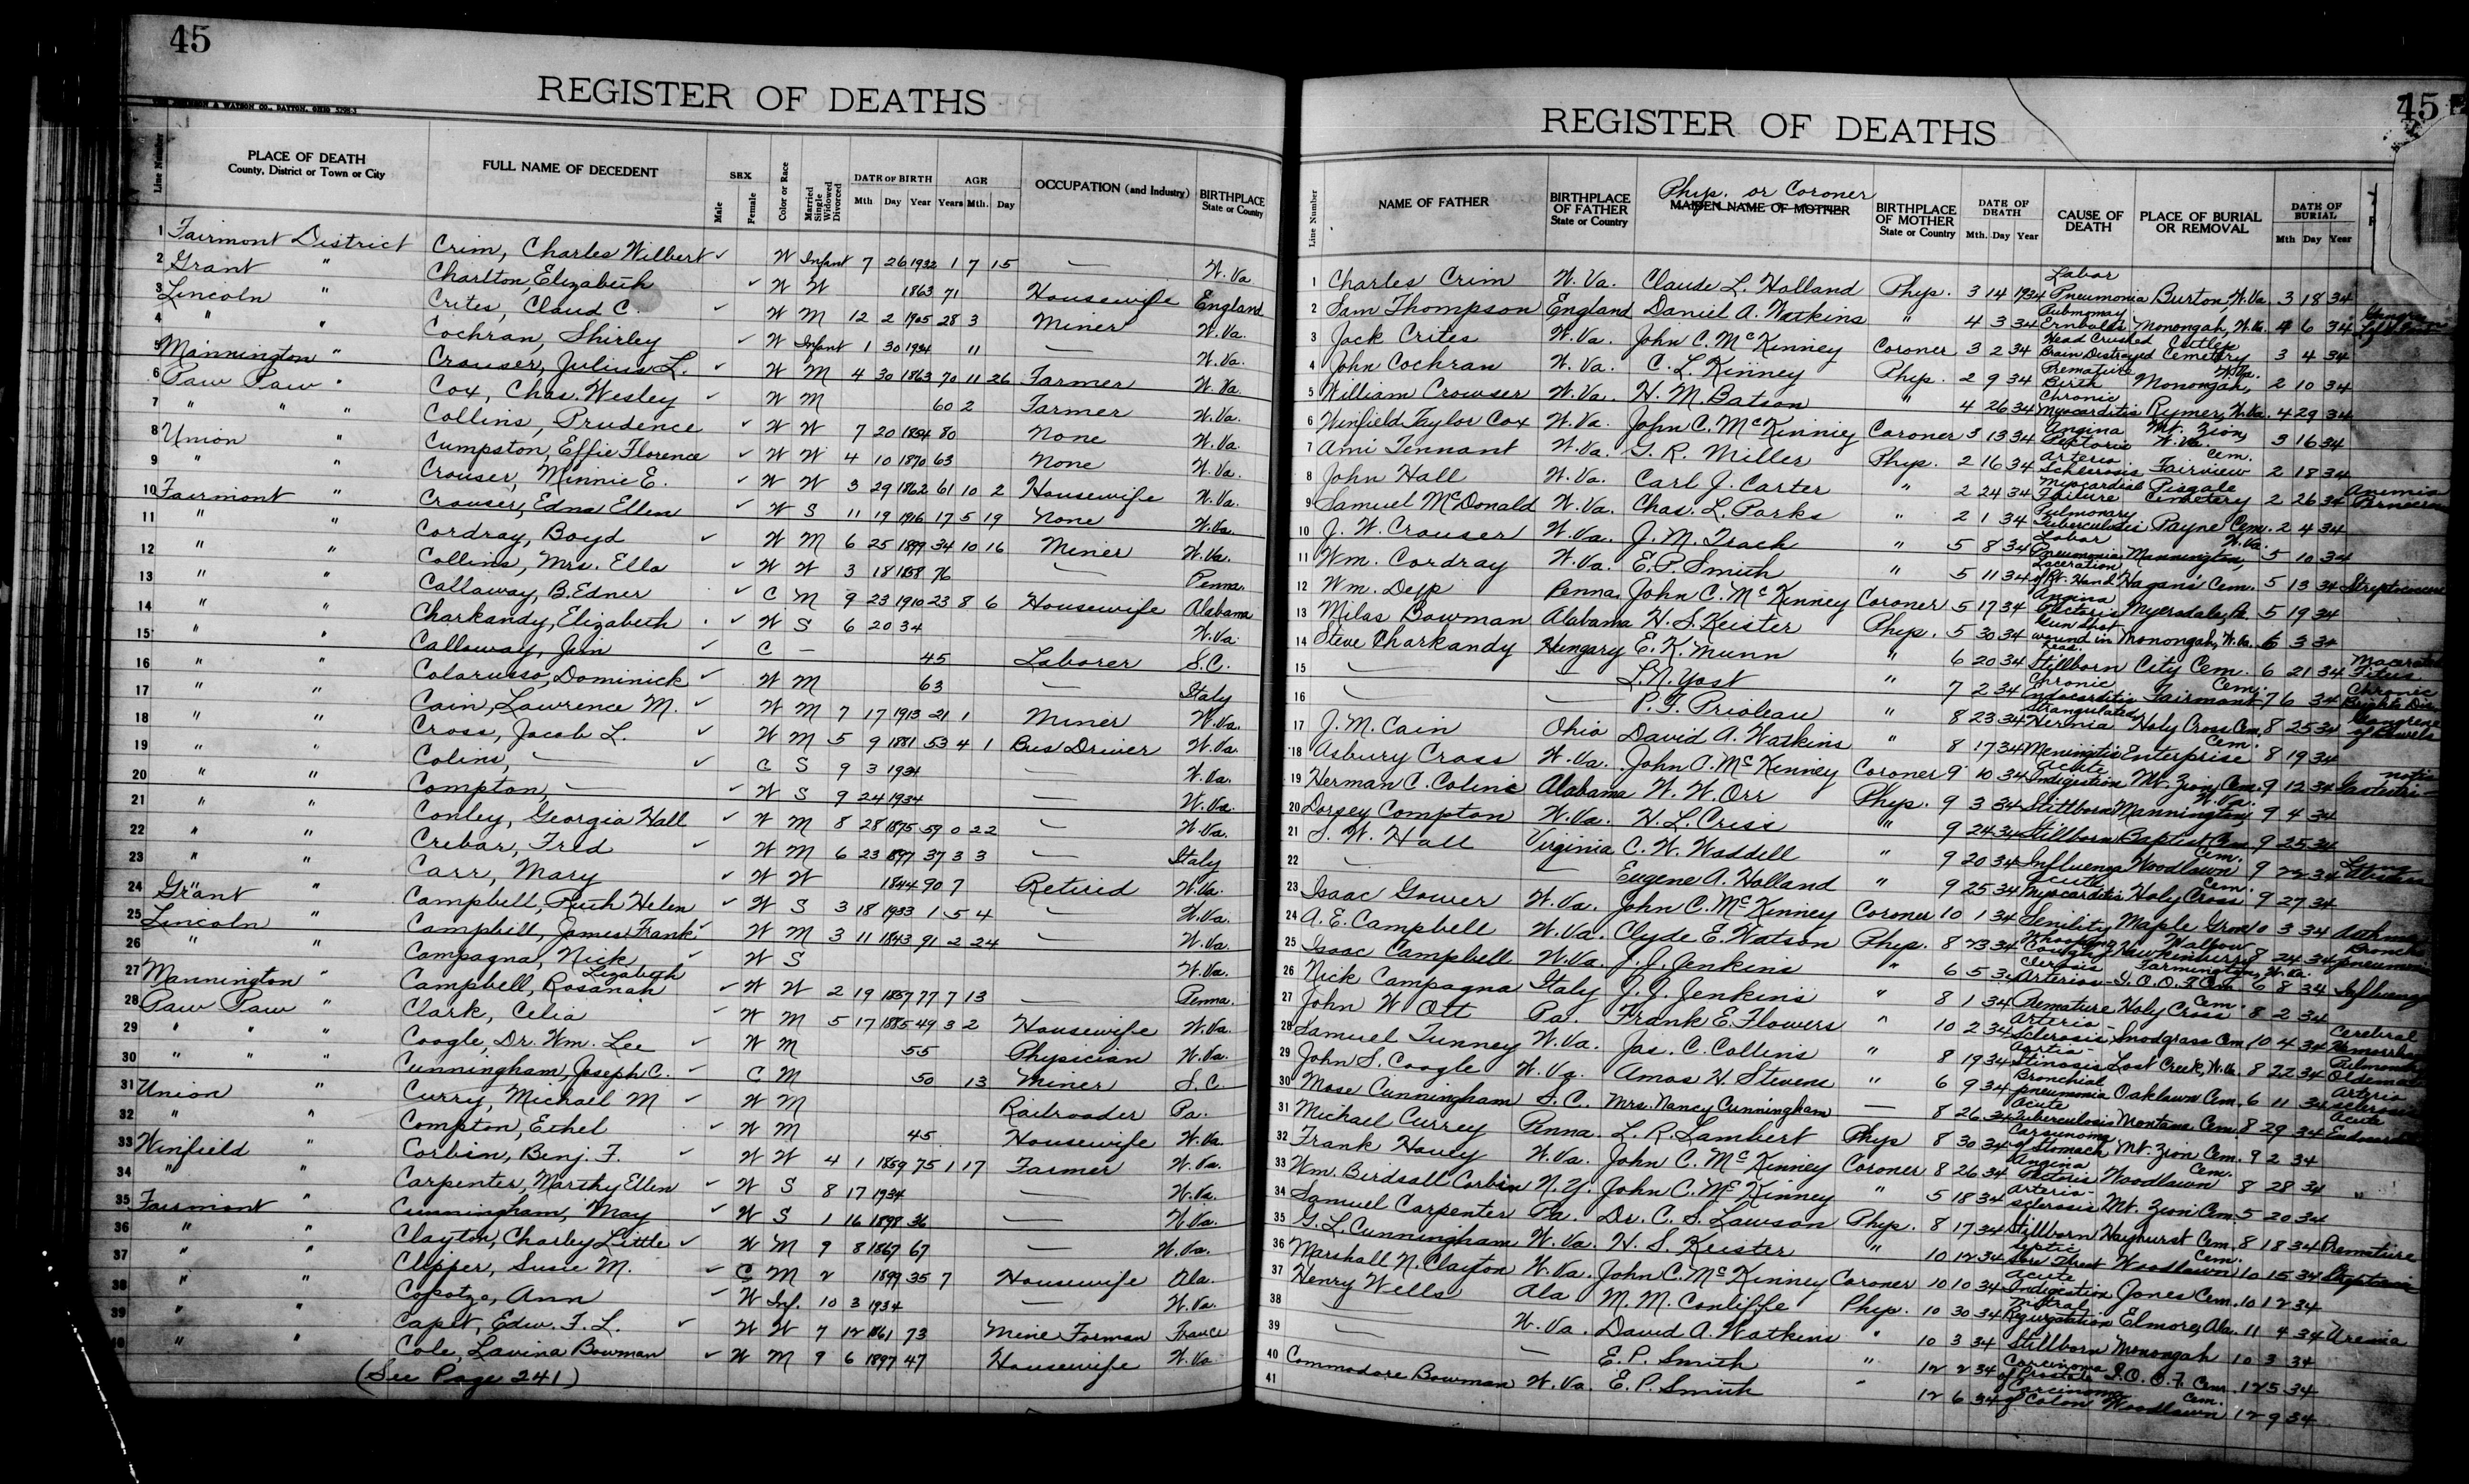 45
REGISTER OF DEATHS
Line Number PLACE OF DEATH County, District or Town or City FULL NAME OF DECEDENT SEX Male Female Color or Race Married Single Widowed Divorced DATE OF BIRTH Mth Day Year AGE Years Mth. Day OCCUPATION (and Industry) BIRTHPLACE State or Country
1 Fairmont District Crim, Charles Wilbert ✓ W Infant 7 26 1932 1 7 15 — W. Va
2 Grant " Charlton, Elizabeth ✓ W W 1863 71 Housewife England
3 Lincoln " Crites, Claud C. ✓ W M 12 2 1905 28 3 Miner W. Va.
4 " " Cochran, Shirley ✓ W Infant 1 30 1934 11 — W. Va.
5 Mannington " Crouser, Julius L. ✓ W M 4 30 1863 70 11 26 Farmer W. Va.
6 Paw Paw " Cox, Chas. Wesley ✓ W M 60 2 Farmer W. Va.
7 " " " Collins, Prudence ✓ W W 7 20 1854 80 None W. Va.
8 Union " Cumpston, Effie Florence ✓ W W 4 10 1870 63 None W. Va.
9 " " Crouser, Minnie E. ✓ W W 3 29 1862 61 10 2 Housewife W. Va.
10 Fairmont " Crouser, Edna Ellen ✓ W S 11 19 1916 17 5 19 None W. Va.
11 " " Cordray, Boyd ✓ W M 6 25 1899 34 10 16 Miner W. Va.
12 " " Collins, Mrs. Ella ✓ W W 3 18 1858 76 — Penna.
13 " " Callaway, B. Edner ✓ C M 9 23 1910 23 8 6 Housewife Alabama
14 " " Charkandy, Elizabeth ✓ W S 6 20 34 — W. Va.
15 " " Calloway, Jim ✓ C — 45 Laborer S.C.
16 " " Colarusso, Dominick ✓ W M 63 — Italy
17 " " Cain, Lawrence M. ✓ W M 7 17 1913 21 1 Miner W. Va.
18 " " Cross, Jacob L. ✓ W M 5 9 1881 53 4 1 Bus Driver W. Va.
19 " " Colins, — ✓ C S 9 3 1934 — W. Va.
20 " " Compton, — ✓ W S 9 24 1934 — W. Va.
21 " " Conley, Georgia Hall ✓ W M 8 28 1875 59 0 22 — W. Va.
22 " " Crebar, Fred ✓ W M 6 23 1897 37 3 3 — Italy
23 " " Carr, Mary ✓ W W 1844 90 7 Retired W. Va.
24 Grant " Campbell, Ruth Helen ✓ W S 3 18 1933 1 5 4 — W. Va.
25 Lincoln " Campbell, James Frank ✓ W M 3 11 1843 91 2 24 — W. Va.
26 " " Campagna, Nick ✓ W S W. Va.
27 Mannington " Campbell, Rosanah Lizabeth ✓ W W 2 19 1857 77 7 13 — Penna.
28 Paw Paw " Clark, Celia ✓ W M 5 17 1885 49 3 2 Housewife W. Va.
29 " " " Coogle, Dr. Wm. Lee ✓ W M 55 Physician W. Va.
30 " " " Cunningham, Joseph C. ✓ C M 50 13 Miner S. C.
31 Union " Curry, Michael M ✓ W M Railroader Pa.
32 " " Compton, Ethel ✓ W M 45 Housewife W. Va.
33 Winfield " Corbin, Benj. F. ✓ W W 4 1 1859 75 1 17 Farmer W. Va.
34 " " Carpenter, Marthy Ellen ✓ W S 8 17 1934 — W. Va.
35 Fairmont " Cunningham, May ✓ W S 1 16 1898 36 — W. Va.
36 " " Clayton, Charley Little ✓ W M 9 8 1867 67 — W. Va.
37 " " Clipper, Susie M. ✓ C M 2 1899 35 7 Housewife Ala.
38 " " Copotzo, Ann ✓ W Inf. 10 3 1934 — W. Va.
39 " " Capet, Edw. F. L. ✓ W W 7 12 1861 73 Mine Forman France
40 " " Cole, Lavina Bowman ✓ W M 9 6 1897 47 Housewife W. Va.
(See Page 241)
45
REGISTER OF DEATHS
Line Number NAME OF FATHER BIRTHPLACE OF FATHER State or Country Phys. or Coroner MAIDEN NAME OF MOTHER BIRTHPLACE OF MOTHER State or Country DATE OF DEATH Mth. Day Year CAUSE OF DEATH PLACE OF BURIAL OR REMOVAL DATE OF BURIAL Mth Day Year
1 Charles Crim W. Va. Claude L. Holland Phys. 3 14 1934 Lobar Pneumonia Burton, W. Va. 3 18 34
2 Sam Thompson England Daniel A. Watkins " 4 3 34 Pulmonary Embolis Monongah, W. Va. 4 6 34
3 Jack Crites W. Va. John C. McKinney Coroner 3 2 34 Head Crushed Brain Distroyed Cutlep Cemetery 3 4 34
4 John Cochran W. Va. C. L. Kinney Phys. 2 9 34 Premature Birth Monongah, W. Va. 2 10 34
5 William Crowser W. Va. H. M. Batson " 4 26 34 Chronic Myocarditis Rymer, W. Va. 4 29 34
6 Winfield Taylor Cox W. Va. John C. McKinney Coroner 3 13 34 Angina Pectoris Mt. Zion, W. Va. 3 16 34
7 Ami Tennant W. Va. G. R. Miller Phys. 2 16 34 Arterio Schlerosis Fairview Cem. 2 18 34
8 John Hall W. Va. Carl J. Carter " 2 24 34 Myocardial Failure Pisgale Cemetery 2 26 34 Anemia
9 Samuel McDonald W. Va. Chas. L. Parks " 2 1 34 Pulmonary Tuberculosis Payne Cem. 2 4 34
10 J. W. Crouser W. Va. J. M. Trach " 5 8 34 Lobar Pneumonia Mannington, W. Va. 5 10 34
11 Wm. Cordray W. Va. E. P. Smith " 5 11 34 Laceration of Rt. Hand Hagans Cem. 5 13 34
12 Wm. Delp Penna. John C. McKinney Coroner 5 17 34 Angina Pectoris Myersdale, Pa. 5 19 34
13 Milas Bowman Alabama H. S. Keister Phys. 5 30 34 Gun shot wound in head. Monongah, W. Va. 6 3 34
14 Steve Charkandy Hungary E. K. Munn " 6 20 34 Stillborn City Cem. 6 21 34
15 — — L. N. Yost " 7 2 34 Chronic Endocarditis Fairmont Cem. 7 6 34 Chronic Brights Dis.
16 — — P. F. Prioleau " 8 23 34 Strangulated Hernia Holy Cross Cem. 8 25 34 Gangrene of Bowels
17 J. M. Cain Ohio David A. Watkins " 8 17 34 Meningitis Enterprise Cem. 8 19 34
18 Asbury Cross W. Va. John C. McKinney Coroner 9 10 34 Acute Indigestion Mt. Zion Cem. 9 12 34
19 Herman C. Colins Alabama W. W. Orr Phys. 9 3 34 Stillborn Mannington, W. Va. 9 4 34
20 Dorsey Compton W. Va. H. L. Criss " 9 24 34 Stillborn Baptist Cem. 9 25 34
21 S. W. Hall Virginia C. W. Waddell " 9 20 34 Influenza Woodlawn Cem. 9 22 34 Lung
22 — — Eugene A. Holland " 9 25 34 Acute Myocarditis Holy Cross Cem. 9 27 34
23 Isaac Gower W. Va. John C. McKinney Coroner 10 1 34 Senility Maple Grove 10 3 34
24 A. E. Campbell W. Va. Clyde E. Watson Phys. 8 23 34 Whooping Cough 8 24 34 Broncho pneumonia
25 Isaac Campbell W. Va. J. J. Jenkins " 6 5 34 Farmington, W. Va. I. O. O. F. Cem. 6 8 34 Influenza
26 Nick Campagna Italy J. J. Jenkins " 8 1 34 Premature Holy Cross Cem. 8 2 34
27 John W Ott Pa. Frank E. Flowers " 10 2 34 Arterio - Sclerosis Snodgrass Cem 10 4 34 Cerebral Hemorrhage
28 Samuel Tunney W. Va. Jas. C. Collins " 8 19 34 Aortia - Stinosis Lost Creek, W. Va. 8 22 34
29 John S. Coogle W. Va. Amos H. Stevens " 6 9 34 Bronchial pneumonia Oaklawn Cem. 6 11 34 Arterio sclerosis
30 Mose Cunningham S. C. Mrs. Nancy Cunningham — 8 26 34 Acute Tuberculosis Montana Cem. 8 29 34
31 Michael Currey Penna. L. R. Lambert Phys 8 30 34 Carsinoma of Stomach Mt. Zion Cem. 9 2 34
32 Frank Havey W. Va. John C. McKinney Coroner 8 26 34 Angina Pectoris Woodlawn Cem. 8 28 34
33 Wm. Birdsall Corbin N. Y. John C. McKinney " 5 18 34 Arterio - sclerosis Mt. Zion Cem. 5 20 34
34 Samuel Carpenter Pa. Dr. C. S. Lawson Phys. 8 17 34 Stillborn Hayhurst Cem. 8 18 34 Premature
35 G. L. Cunningham W. Va. H. S. Keister " 10 12 34 Septic Sore Throat Woodlawn Cem. 10 15 34
36 Marshall N. Clayton W. Va. John C. McKinney Coroner 10 10 34 Acute Indigestion Jones Cem. 10 12 34
37 Henry Wells Ala M. M. Conliffe Phys. 10 30 34 Mitral Regurgitation Elmore, Ala. 11 4 34 Uremia
38 — W. Va. David A. Watkins " 10 3 34 Stillborn Monongah 10 3 34
39 — — E. P. Smith " 12 2 34 Carcinoma of Prostate I. O. O. F. Cem. 12 5 34
40 Commodore Bowman W. Va. E. P. Smith " 12 6 34 Carcinoma of Colon Woodlawn Cem. 12 9 34
41